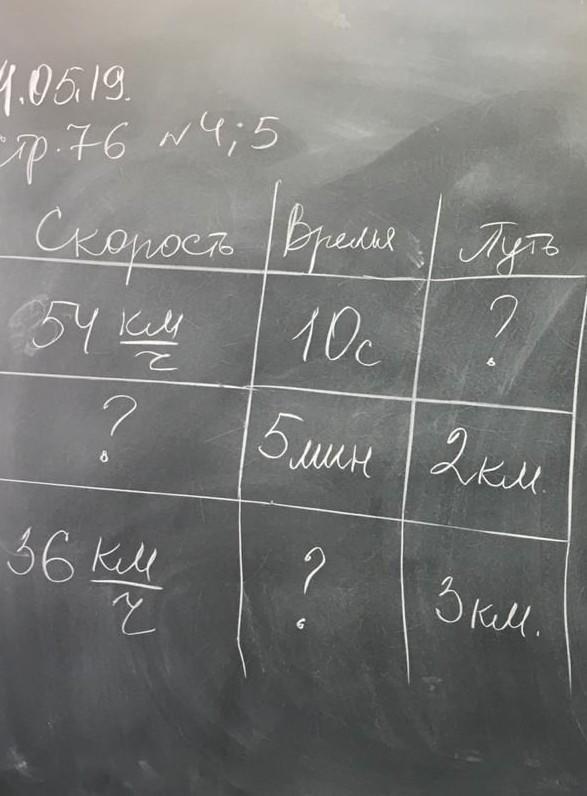 4.05.19.
стр.76 №4;5
Скорость Время Путь
54 км/ч 10с ?
? 5мин 2км.
36 км/ч ? 3км.